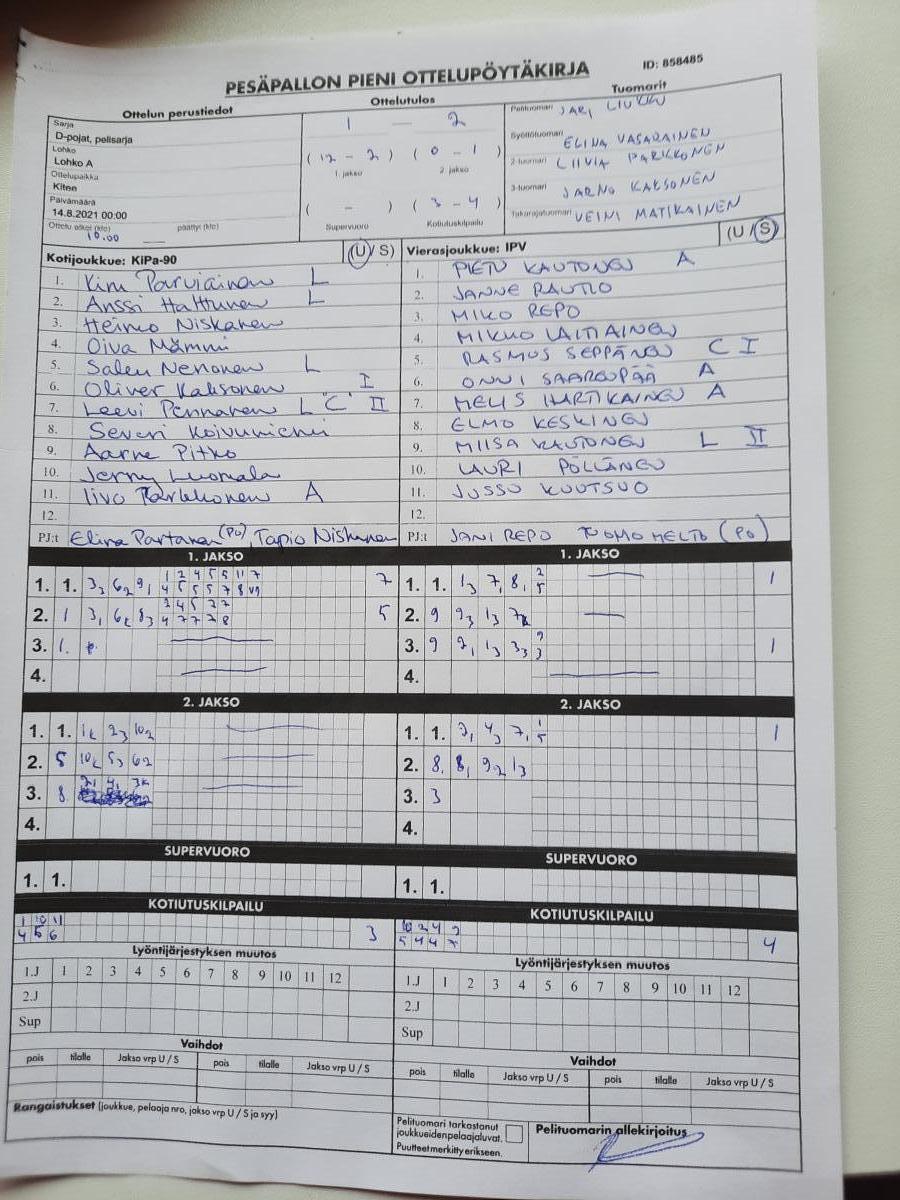 PESÄPALLON PIENI OTTELUPÖYTÄKIRJA
ID: 858485
Ottelun perustiedot
Sarja
D-pojat, pelisarja
Lohko
Lohko A
Ottelupaikka
Kitee
Päivämäärä
14.8.2021 00:00
Ottelu alkoi (klo) 10.00 päättyi (klo)
Ottelutulos
1 — 2
(12 - 2) (0 - 1)
1. jakso 2. jakso
( - ) (3 - 4)
Supervuoro Kotiutuskilpailu
Tuomarit
Pelituomari JARI LIUKKU
Syöttötuomari ELINA VASARAINEN
2-tuomari LIIVIA PARKKONEN
3-tuomari JARNO KAKSONEN
Takarajatuomari VEINI MATIKAINEN
Kotijoukkue: KiPa-90 (U / S)
1. Kimi Parviainen L
2. Anssi Halttunen L
3. Heimo Niskanen
4. Oiva Mämmi
5. Nenonen L
6. Oliver Kaksonen I
7. Leevi Pennanen L "C" II
8. Severi Koivuniemi
9. Aarne Pitko
10. Jermy Luomala
11. Iivo Parkkonen A
12.
PJ:t Elina Partanen (PO), Tapio Niskanen
Vierasjoukkue: IPV (U / S)
1. PIETU KAUTONEN A
2. JANNE RAUTIO
3. MIKO REPO
4. MIKKO LAITIAINEN
5. RASMUS SEPPÄNEN C I
6. ONNI SAARENPÄÄ A
7. MELIS HARTIKAINEN A
8. ELMO KESKINEN
9. MIISA KAUTONEN L II
10. LAURI PÖLLÄNEN
11. JUSSU KUUTSUO
12.
PJ:t JANI REPO TUOMO MELTO (PO)
1. JAKSO
1. 1. 3₂ 6₂ 9₁ 7
2. 1 5
3. 1.
4.
1. JAKSO
1. 1. 1₃ 7₁ 8₁ 2 5 1
2. 9 9₃ 1₃
3. 9 9₁ 1₃ 3₃ 1
4.
2. JAKSO
1. 1. 2₃ 10₂
2. 5 5₃ 6₂
3. 8
4.
2. JAKSO
1. 1. 3₁ 4₃ 7₁ 1 5 1
2. 8 8₁ 9₂ 1₃
3. 3
4.
SUPERVUORO
1. 1.
SUPERVUORO
1. 1.
KOTIUTUSKILPAILU
1 10 11
4 5 6 3
KOTIUTUSKILPAILU
4
Lyöntijärjestyksen muutos
1.J 1 2 3 4 5 6 7 8 9 10 11 12
2.J
Sup
Lyöntijärjestyksen muutos
1.J 1 2 3 4 5 6 7 8 9 10 11 12
2.J
Sup
Vaihdot
pois tilalle Jakso vrp U / S pois tilalle Jakso vrp U / S
Vaihdot
pois tilalle Jakso vrp U / S pois tilalle Jakso vrp U / S
Rangaistukset (joukkue, pelaaja nro, jakso vrp U / S ja syy)
Pelituomari tarkastanut
joukkueidenpelaajaluvat.
Puutteet merkitty erikseen.
Pelituomarin allekirjoitus